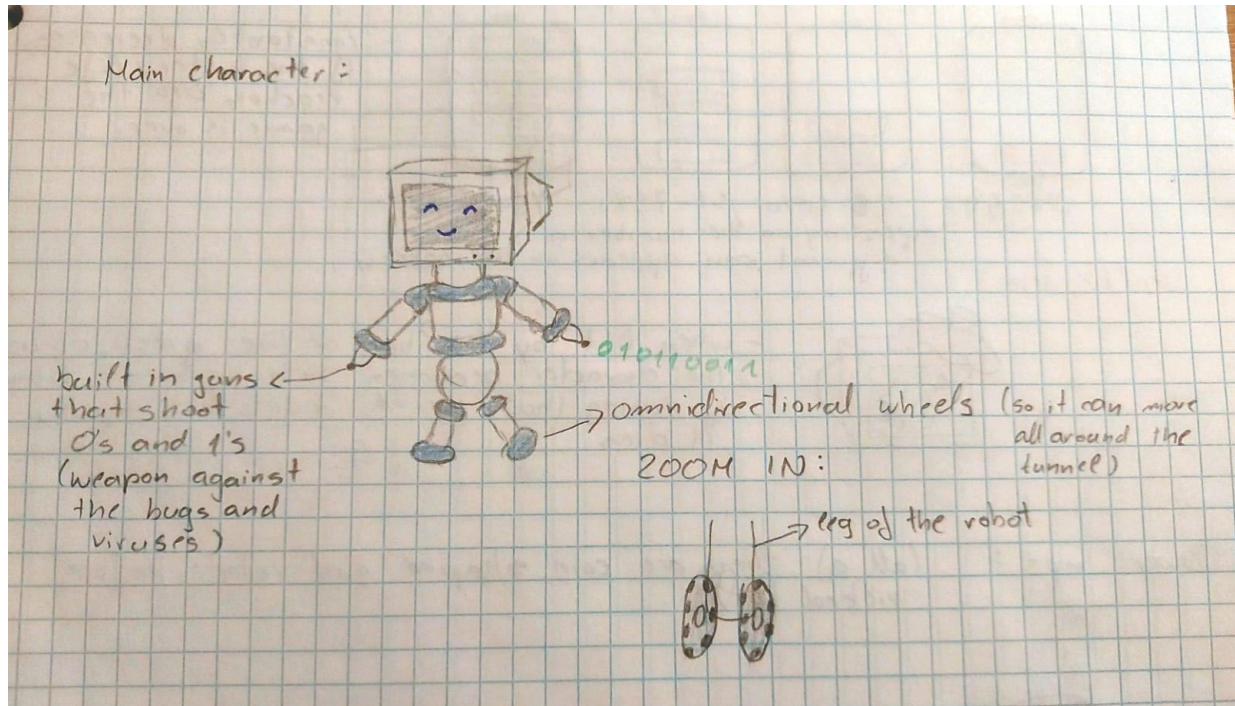 Main character:
010110011
built in guns
that shoot
0's and 1's
(weapon against
the bugs and
viruses)
omnidirectional wheels (so it can move
all around the
tunnel)
ZOOM IN:
leg of the robot